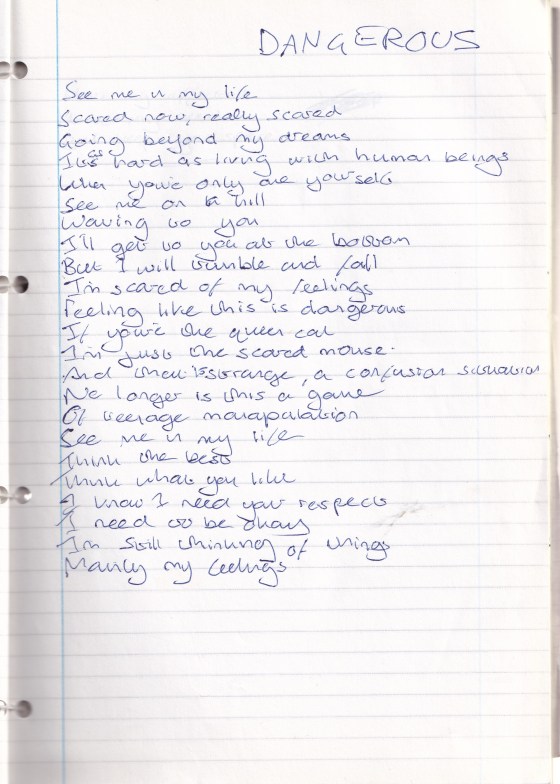 DANGEROUS
See me in my life
Scared now, really scared
Going beyond my dreams
Just as hard as living with human beings
When you're only one yourself
See me on a hill
Waving to you
I'll get to you at the bottom
But I will tumble and fall
I'm scared of my feelings
Feeling like this is dangerous
If you're the queen cat
I'm just the scared mouse.
And that is strange, a confusion situation
No longer is this a game
Of teenage manapulation
See me in my life
Think the best
Think what you like
I know I need your respect
I need to be okay
I'm still thinking of things
Mainly my feelings